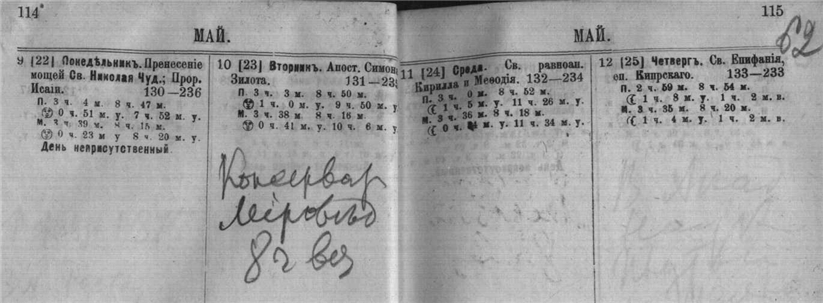 114*
МАЙ.
9 [22] Понедѣльникъ. Пренесеніе
мощей Св. Николая Чуд.; Прор.
Исаіи. 130—236
П. 3 ч. 4 м. 8 ч. 47 м.
0 ч. 51 м. у. 7 ч. 52 м. у.
М. 3 ч. 39 м. 8 ч. 15 м.
0 ч. 23 м у 8 ч. 20 м. у.
День неприсутственный
10 [23] Вторникъ. Апост. Симона
Зилота. 131—235
П. 3 ч. 3 м. 8 ч. 50 м.
1 ч. 0 м. у. 9 ч. 50 м. у
М. 3 ч. 38 м 8 ч. 16 м
0 ч. 41 м. у. 10 ч. 6 м у
Консервар
8 ч веч
115
62
МАЙ.
11 [24] Среда. Св. равноап.
Кирилла и Меѳодія. 132—234
П. 3 ч. 0 м. 8 ч. 52 м.
1 ч. 5 м. у. 11 ч. 26 м. у.
М. 3 ч. 36 м. 8 ч. 18 м.
0 ч. м. у. 11 ч. 34 м. у.
12 [25] Четвергъ. Св. Епифанія,
еп. Кипрскаго. 133—233
П. 2 ч. 59 м. 8 ч. 54 м.
1 ч. 8 м. у. 1 ч. 2 м. в.
М. 3 ч. 35 м. 8 ч. 20 м.
1 ч. 4 м. у. 1 ч. 2 м. в.